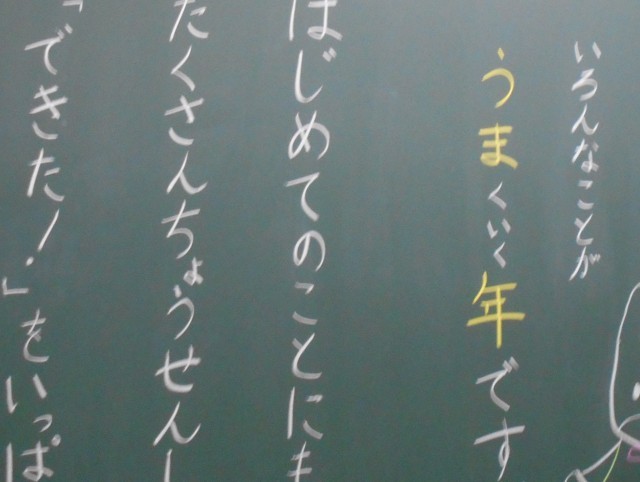 いろんなことが
うまくいく年です
はじめてのことにも
たくさんちょうせんし
「できた!」をいっぱ